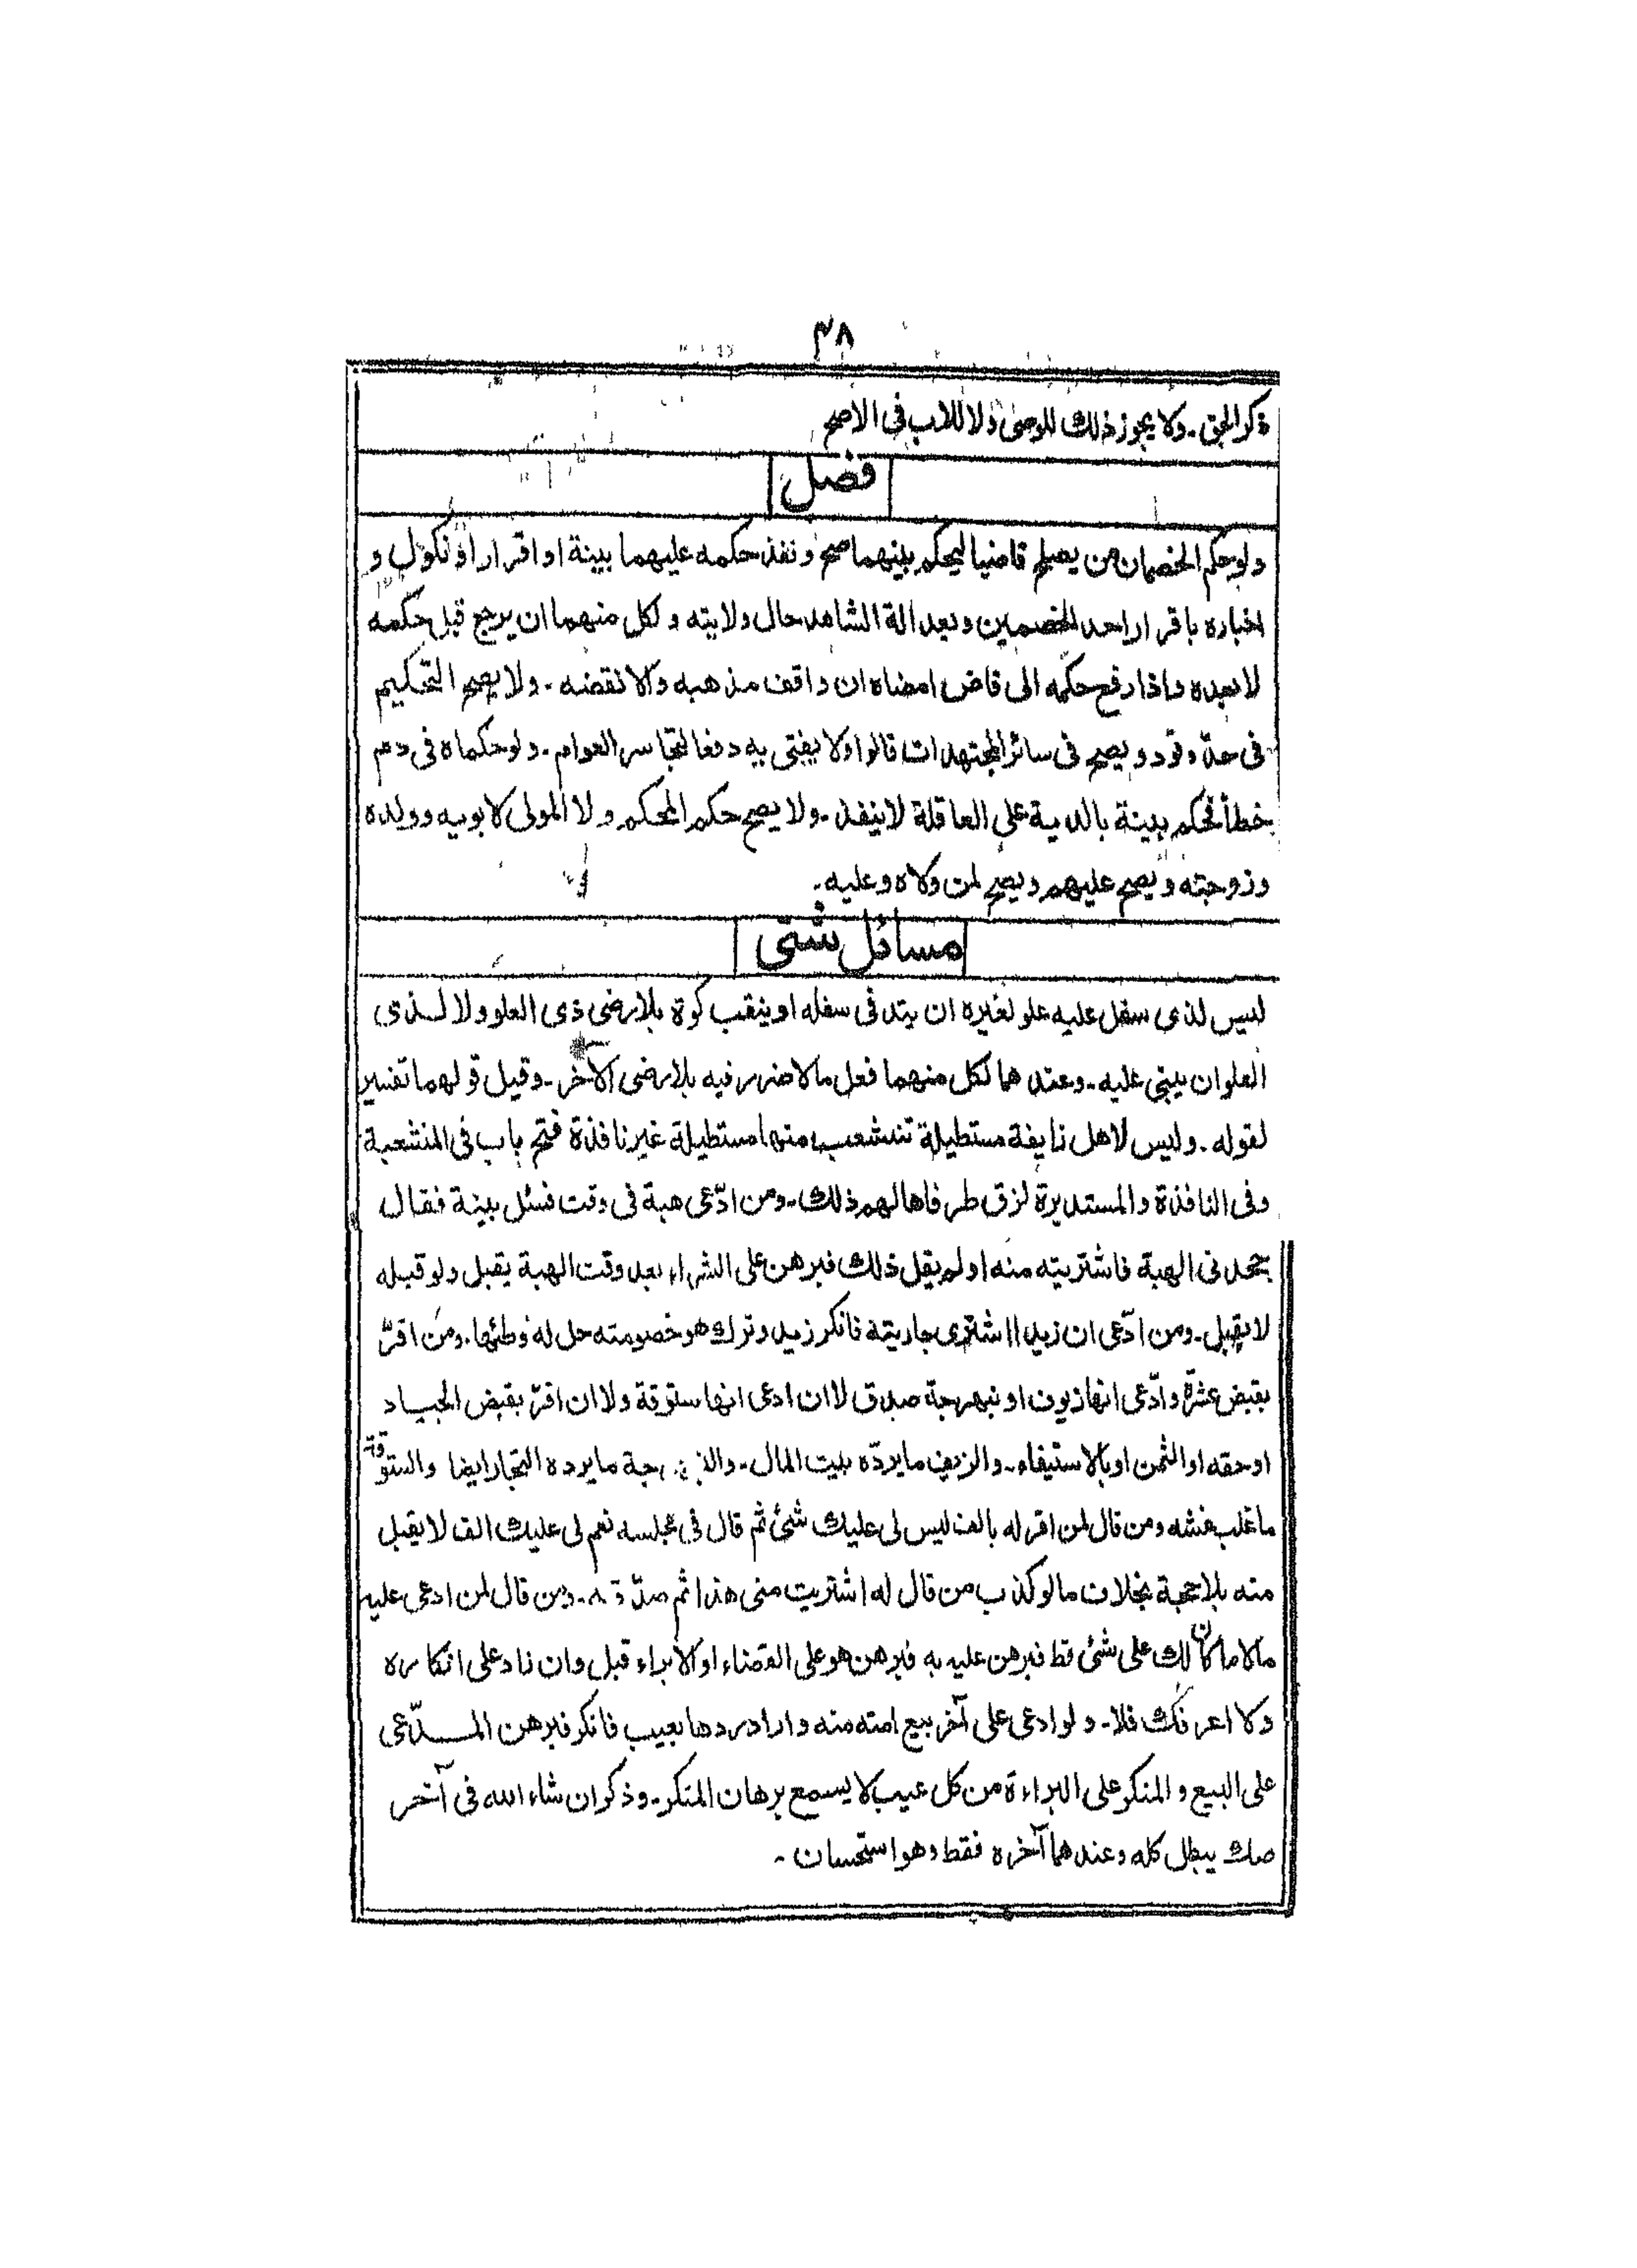 ٣٨
ذكر الحق ـ ولا يجوز ذلك للوصى ولا للاب فى الاصح
فصل
ولو حكم الخصمان من يصلح قاضيا ليحكم بينهما صح ونفذ حكمه عليهما ببينة او اقرار او نكول و
اخباره باقرار احد الخصمين وبعدالة الشاهد حال ولايته ولكل منهما ان يرجع قبل حكمه
لا بعده واذا رفع حكمه الى قاض امضاه ان وافق مذهبه والا نقضه ـ ولا يصح التحكيم
فى حدّ وقود ويصح فى سائر المجتهدات قالوا ولا يفتى به دفعا لتجاسر العوام ـ ولو حكماه فى دم
خطأ فحكم ببينة بالدية على العاقلة لا ينفذ ـ ولا يصح حكم المحكم ولا المولى لابويه وولده
وزوجته ويصح عليهم ويصح لمن ولاه وعليه ـ
مسائل شتى
ليس لذى سفل عليه علو لغيره ان يتد فى سفله او ينقب كوة بلا رضى ذى العلو ولا لـذى
العلو ان يبنى عليه ـ وعندهما لكل منهما فعل ما لا ضرر فيه بلا رضى الآخر ـ وقيل قولهما تفسير
لقوله ـ وليس لاهل زايغة مستطيلة تنشعب منها مستطيلة غير نافذة فتح باب فى المنشعبة
وفى النافذة والمستديرة لزق طرفاها لهم ذلك ـ ومن ادّعى هبة فى وقت فسئل بينة فقال
جحدنى الهبة فاشتريته منه اولم يقل ذلك فبرهن على الشراء بعد وقت الهبة يقبل ولو قبله
لا يقبل ـ ومن ادّعى ان زيدا اشترى جاريته فانكر زيد وترك هو خصومته حل له وطئها ـ ومن اقرّ
بقبض عشرة وادّعى انها زيوف او نبهرجة صدق لا ان ادعى انها ستوقة ولا ان اقرّ بقبض الجيـاد
او حقه او الثمن او بالاستيفاء ـ والزيف ما يردّه بيت المال ـ والنبهرجة ما يرده التجار ايضا والستوقة
ما غلب غشه ومن قال لمن اقر له بالف ليس لى عليك شئ ثم قال فى مجلسه نعم لى عليك الف لا يقبل
منه بلا حجة بخلاف ما لو كذب من قال له اشتريت منى هذا ثم صدّقه ـ ومن قال لمن ادعى عليه
مالا ما كان لك على شئ قط فبرهن عليه به فبرهن هو على القضاء او الابراء قبل وان زاد على انكاره
ولا اعرفك فلا ـ ولو ادعى على آخر بيع امته منه واراد ردها بعيب فانكر فبرهن المـدّعى
على البيع والمنكر على البراءة من كل عيب لا يسمع برهان المنكر ـ وذكر ان شاء الله فى آخر
صك يبطل كله وعندهما آخره فقط وهو استحسان ـ